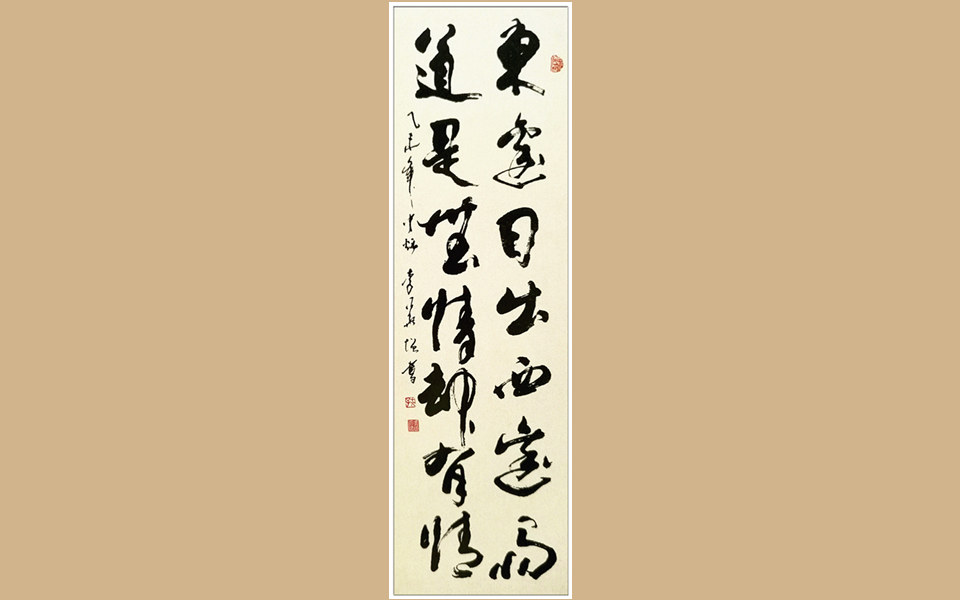 東邊日出西邊雨
道是無情却有情
乙未年 李 書